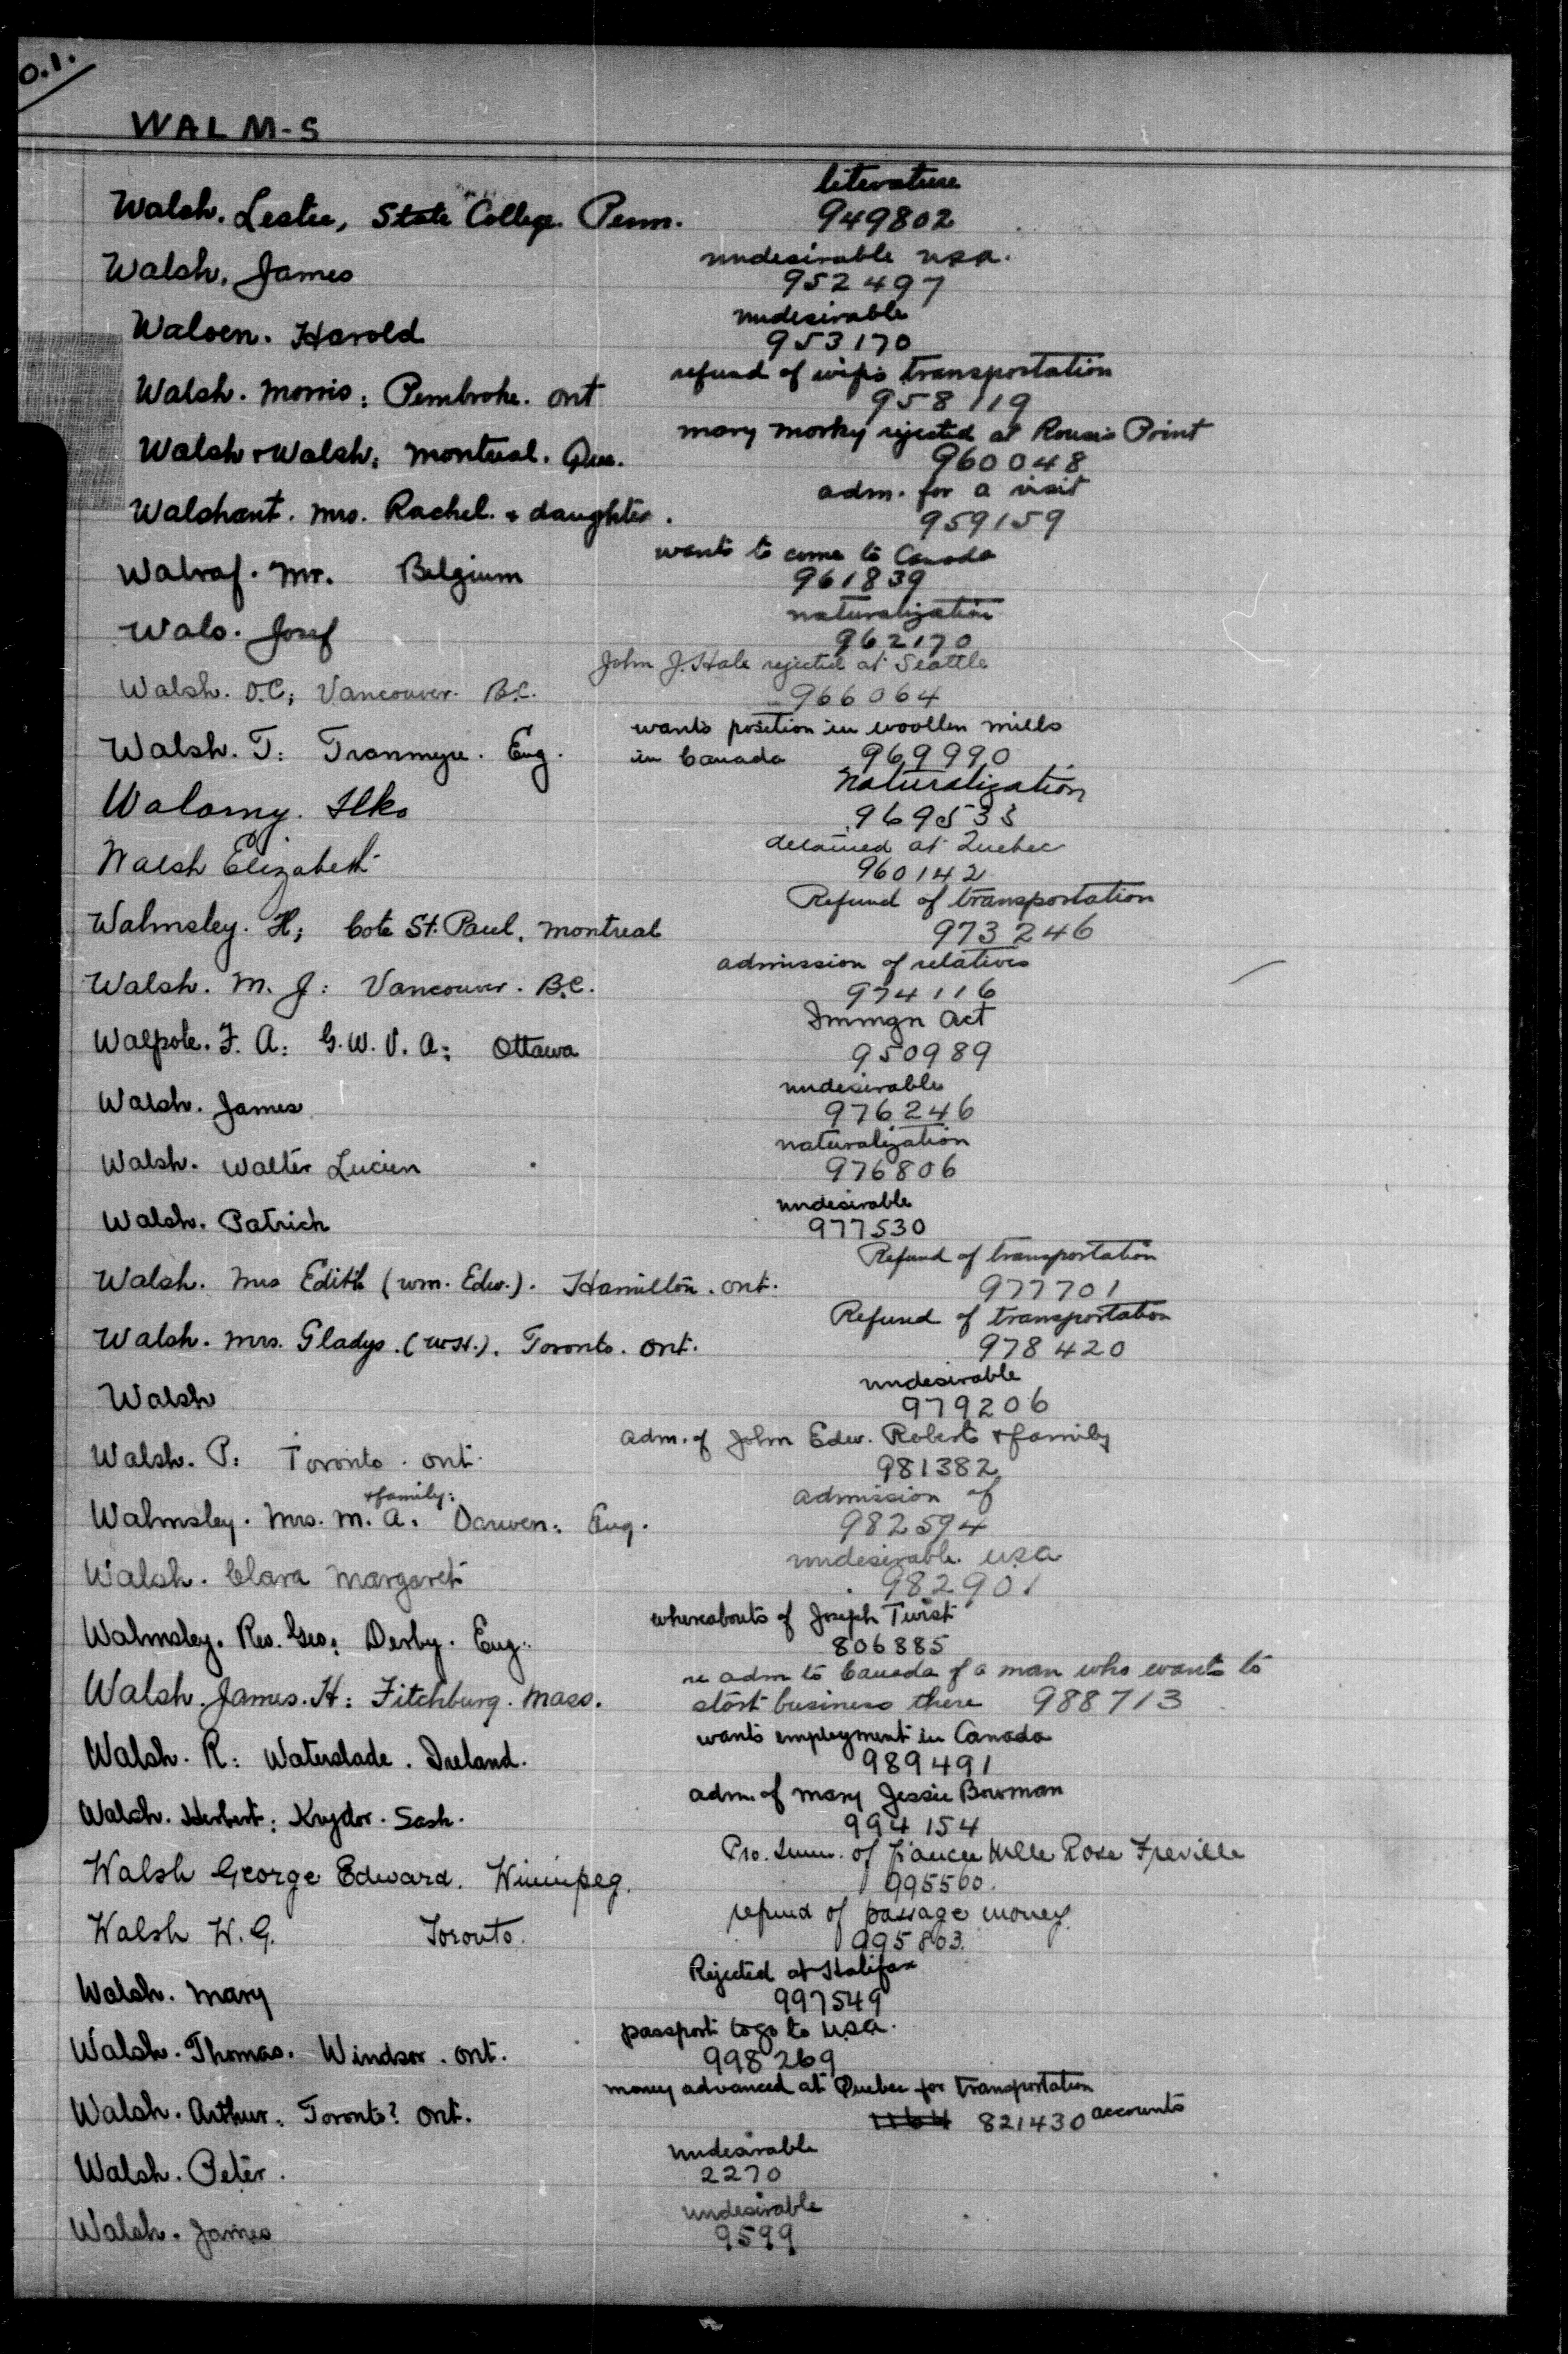 O.1.
WALM-S
literature
Walsh. Leslie, State College. Penn. 949802
undesirable usa.
Walsh. James 952497
undesirable
Walsen. Harold 953170
refund of wife's transportation
Walsh. Morris: Pembroke. Ont 958119
Mary Morky rejected at Rouse's Point
Walsh & Walsh: Montreal. Que. 960048
adm. for a visit
Walshant. Mrs. Rachel. & daughter. 959159
wants to come to Canada
Walraf. Mr. Belgium 961839
naturalization
Wals. Josef 962170
John J. Hale rejected at Seattle
Walsh. O.C; Vancouver. B.C. 966064
wants position in woollen mills
Walsh. T: Tranmere. Eng. in Canada 969990
Naturalization
Walomy. Ilko 969533
detained at Quebec
Walsh Elizabeth 960142
Refund of transportation
Walmsley. H; Cote St. Paul, Montreal 973246
admission of relatives
Walsh. M. J: Vancouver. B.C. 974116
Immgn Act
Walpole. F. A: G.W.V.A: Ottawa 950989
undesirable
Walsh. James 976246
naturalization
Walsh. Walter Lucien 976806
undesirable
Walsh. Patrick 977530
Refund of transportation
Walsh. Mrs Edith (Wm. Edw.). Hamilton. Ont. 977701
Refund of transportation
Walsh. Mrs. Gladys. (W.H.). Toronto. Ont. 978420
undesirable
Walsh 979206
adm. of John Edw. Roberts & family
Walsh. P: Toronto. Ont. 981382
& family: admission of
Walmsley. Mrs. M. A: Darwen: Eng. 982594
undesirable. usa
Walsh. Clara Margaret 982901
whereabouts of Joseph Twist
Walmsley. Rev. Geo: Derby. Eng. 806885
re adm to Canada of a man who wants to
Walsh. James. H: Fitchburg. Mass. start business there 988713
wants employment in Canada
Walsh. R: Waterslade. Ireland. 989491
adm. of Mary Jessie Bowman
Walsh. Herbert: Krydor. Sask. 994154
Pro. Imm. of fiancee Mlle Rose Freville
Walsh George Edward. Winnipeg. 995560.
refund of passage money
Walsh W. G. Toronto. 995863.
Rejected at Halifax
Walsh. Mary 997549
passport to go to usa.
Walsh. Thomas. Windsor. Ont. 998269
money advanced at Quebec for transportation
Walsh. Arthur. Toronto? Ont. 1164 821430 accounts
undesirable
Walsh. Peter. 2270
undesirable
Walsh. James 9599